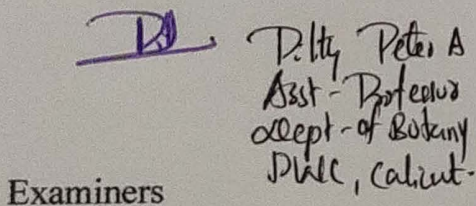 Dilty Peter A
Asst - Professor
Dept - of Botany
DWC, Calicut.
Examiners